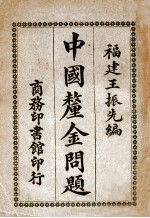 福建王振先編
中國釐金問題
商務印書館印行